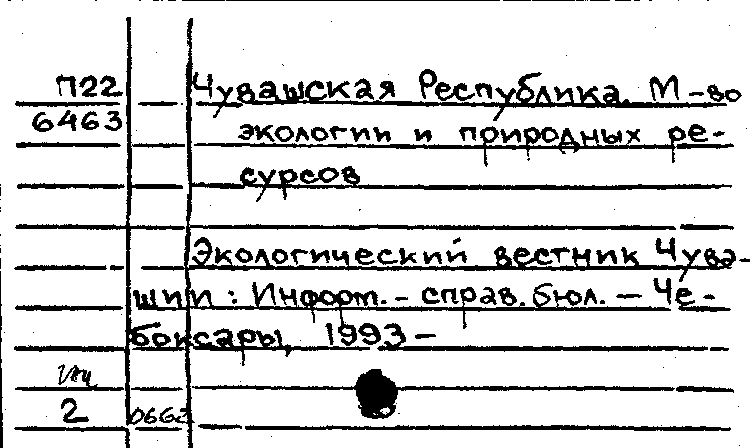 П22 Чувашская Республика. М-во
6463 экологии и природных ре-
сурсов
Экологический вестник Чува-
шии: Информ.-справ. бюл. — Че-
боксары, 1993 -
2 0662